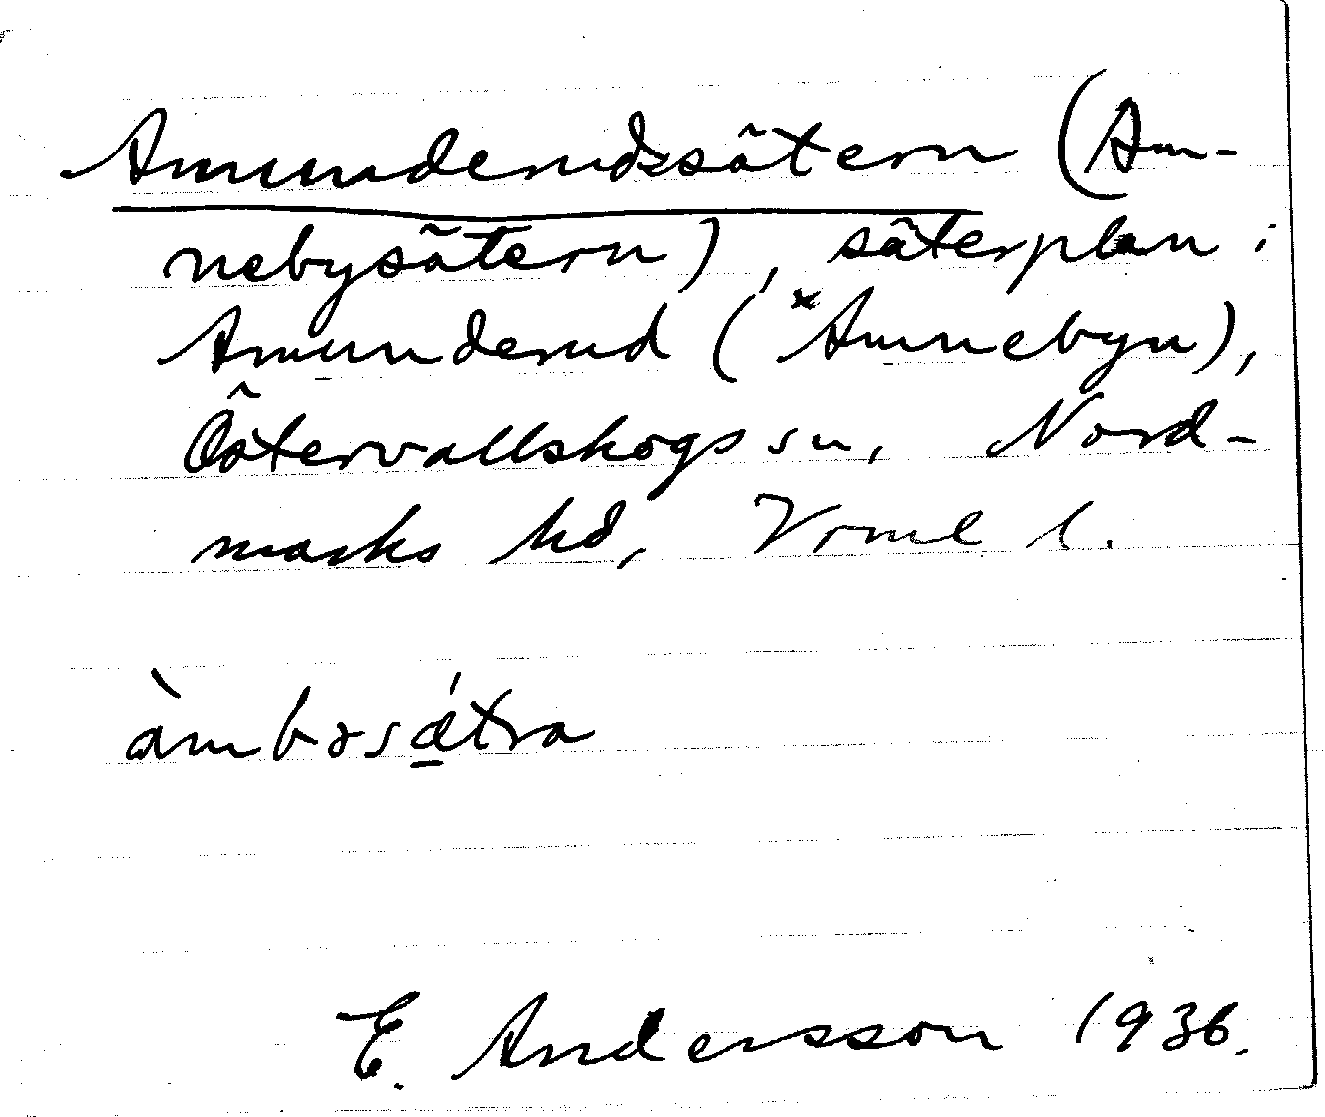 Amunderudssätern (Am-
nebysätern), säterplan i
Amunderud (*Amnebyn),
Östervallskogs sn, Nord-
marks hd, Vrml l.
àmbəsátra
E. Andersson 1936.